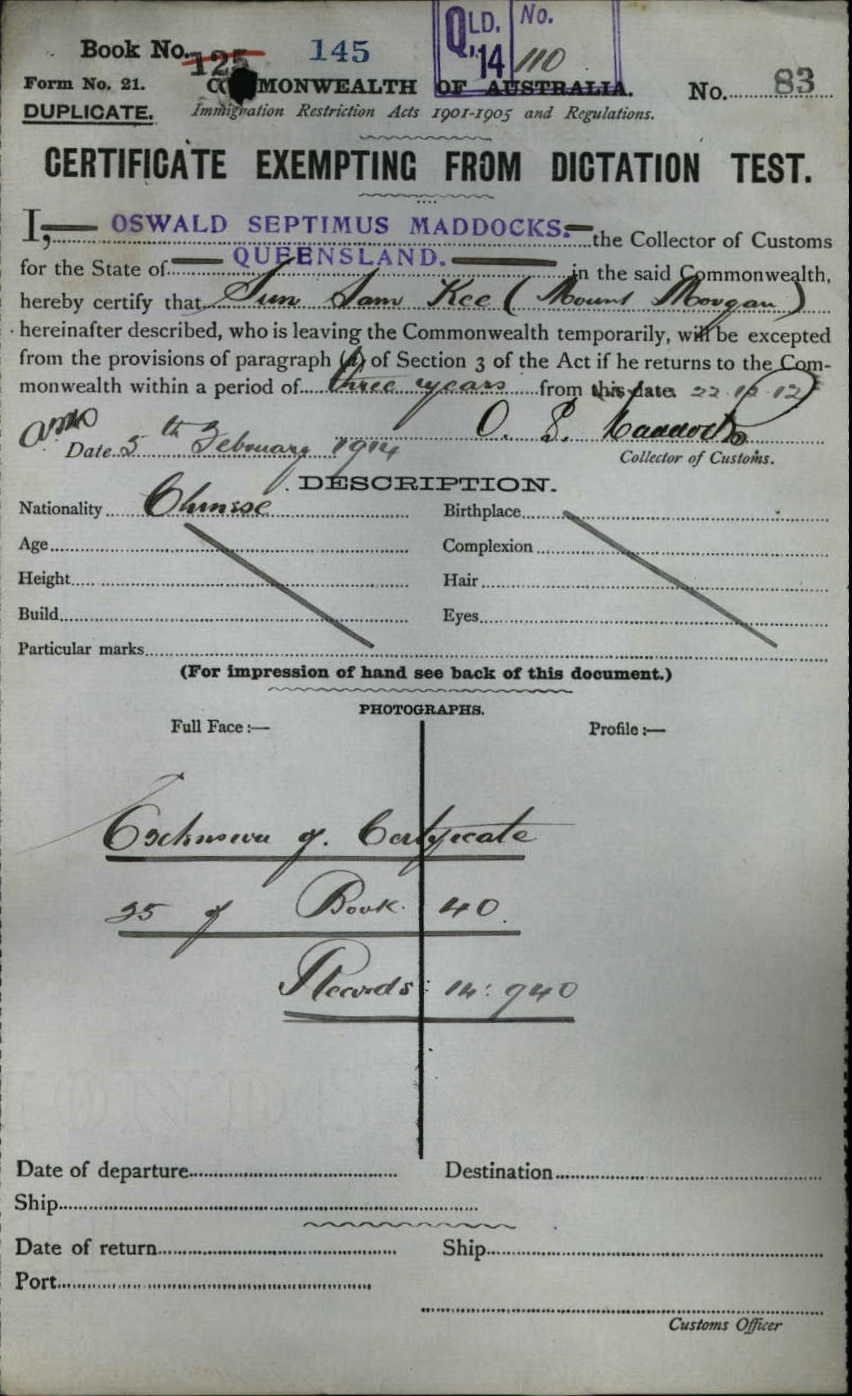 Book No. 125 145
QLD. No.
'14 110
Form No. 21. COMMONWEALTH OF AUSTRALIA. No. 83
DUPLICATE. Immigration Restriction Acts 1901-1905 and Regulations.
CERTIFICATE EXEMPTING FROM DICTATION TEST.
I, OSWALD SEPTIMUS MADDOCKS. the Collector of Customs
for the State of QUEENSLAND. in the said Commonwealth,
hereby certify that Sun Sam Kee (Mount Morgan)
hereinafter described, who is leaving the Commonwealth temporarily, will be excepted
from the provisions of paragraph (a) of Section 3 of the Act if he returns to the Com-
monwealth within a period of three years from this date. 22.12.12
O. S. Maddocks
Date 5th February 1914 Collector of Customs.
DESCRIPTION.
Nationality Chinese Birthplace
Age Complexion
Height Hair
Build Eyes
Particular marks
(For impression of hand see back of this document.)
PHOTOGRAPHS.
Full Face :— Profile :—
Extension of Certificate
35 of Book 40.
Records: 14: 940
Date of departure Destination
Ship
Date of return Ship
Port
Customs Officer